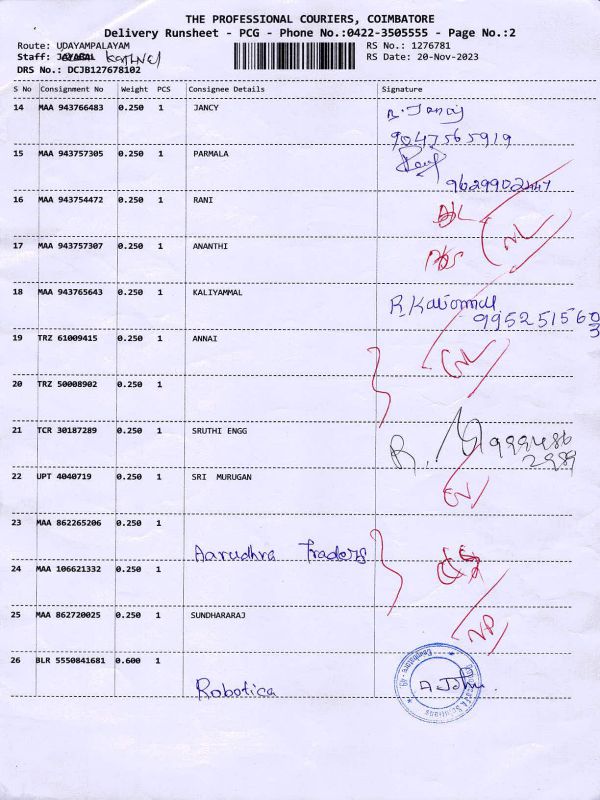 THE PROFESSIONAL COURIERS, COIMBATORE
Delivery Runsheet - PCG - Phone No.:0422-3505555 - Page No.:2
Route: UDAYAMPALAYAM
RS No.: 1276781
Staff: JAYABAL
RS Date: 20-Nov-2023
DRS No.: DCJB127678102
S No Consignment No Weight PCS Consignee Details Signature
14 MAA 943766483 0.250 1 JANCY
9047565919
15 MAA 943757305 0.250 1 PARMALA
9629902447
16 MAA 943754472 0.250 1 RANI
NL
17 MAA 943757307 0.250 1 ANANTHI
18 MAA 943765643 0.250 1 KALIYAMMAL
9952515603
19 TRZ 61009415 0.250 1 ANNAI
20 TRZ 50008902 0.250 1
21 TCR 30187289 0.250 1 SRUTHI ENGG
R.
9994862989
22 UPT 4040719 0.250 1 SRI MURUGAN
23 MAA 862265206 0.250 1
Aarudhra Traders
24 MAA 106621332 0.250 1
25 MAA 862720025 0.250 1 SUNDHARARAJ
NP
26 BLR 5550841681 0.600 1
Robotica
A John.